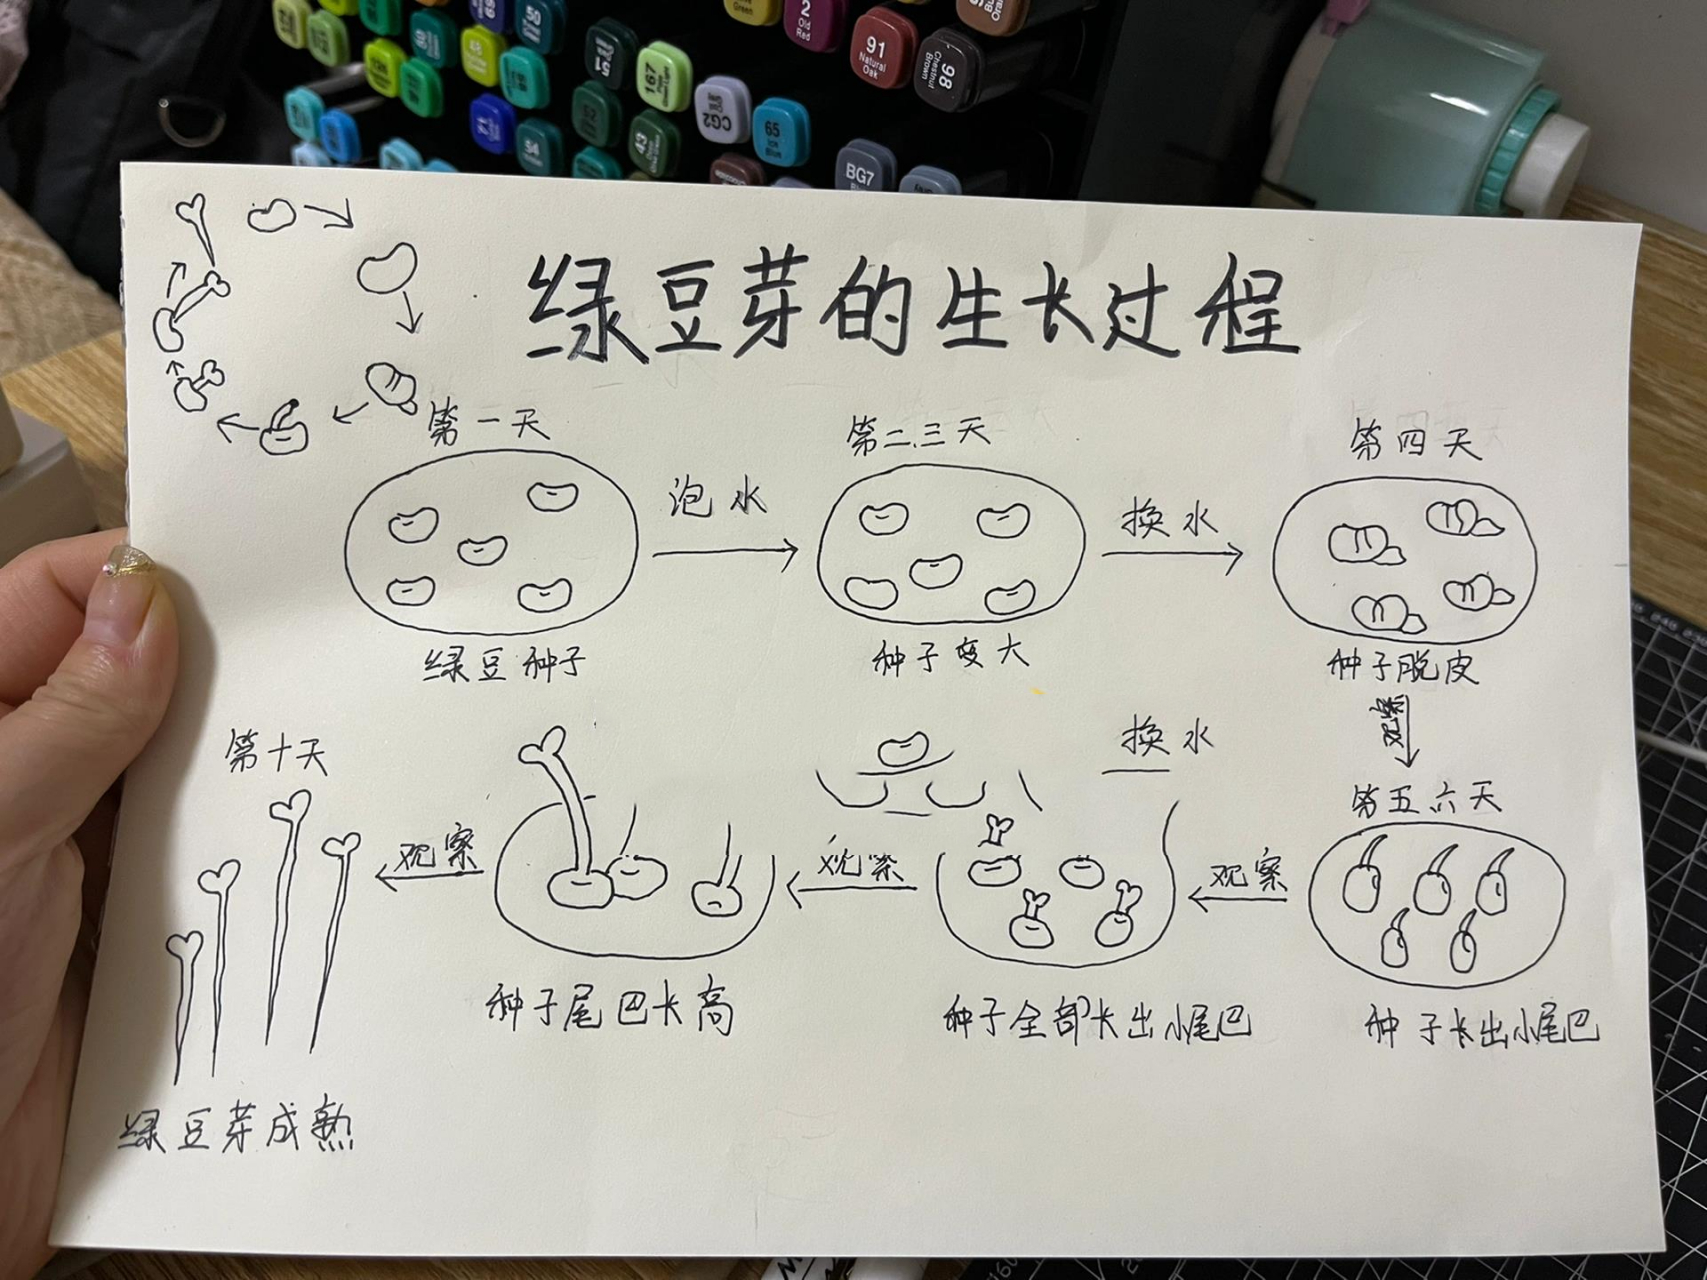 50
151
167
CG2
65
Ice
Blue
2
Old
Red
91
Natural
Oak
98
Chestnut
Brown
43
54
BG7
绿豆芽的生长过程
第一天
泡水
第二.三天
换水
第四天
绿豆种子
种子变大
种子脱皮
观察
第十天
观察
观察
换水
观察
第五六天
种子尾巴长高
种子全部长出小尾巴
种子长出小尾巴
绿豆芽成熟